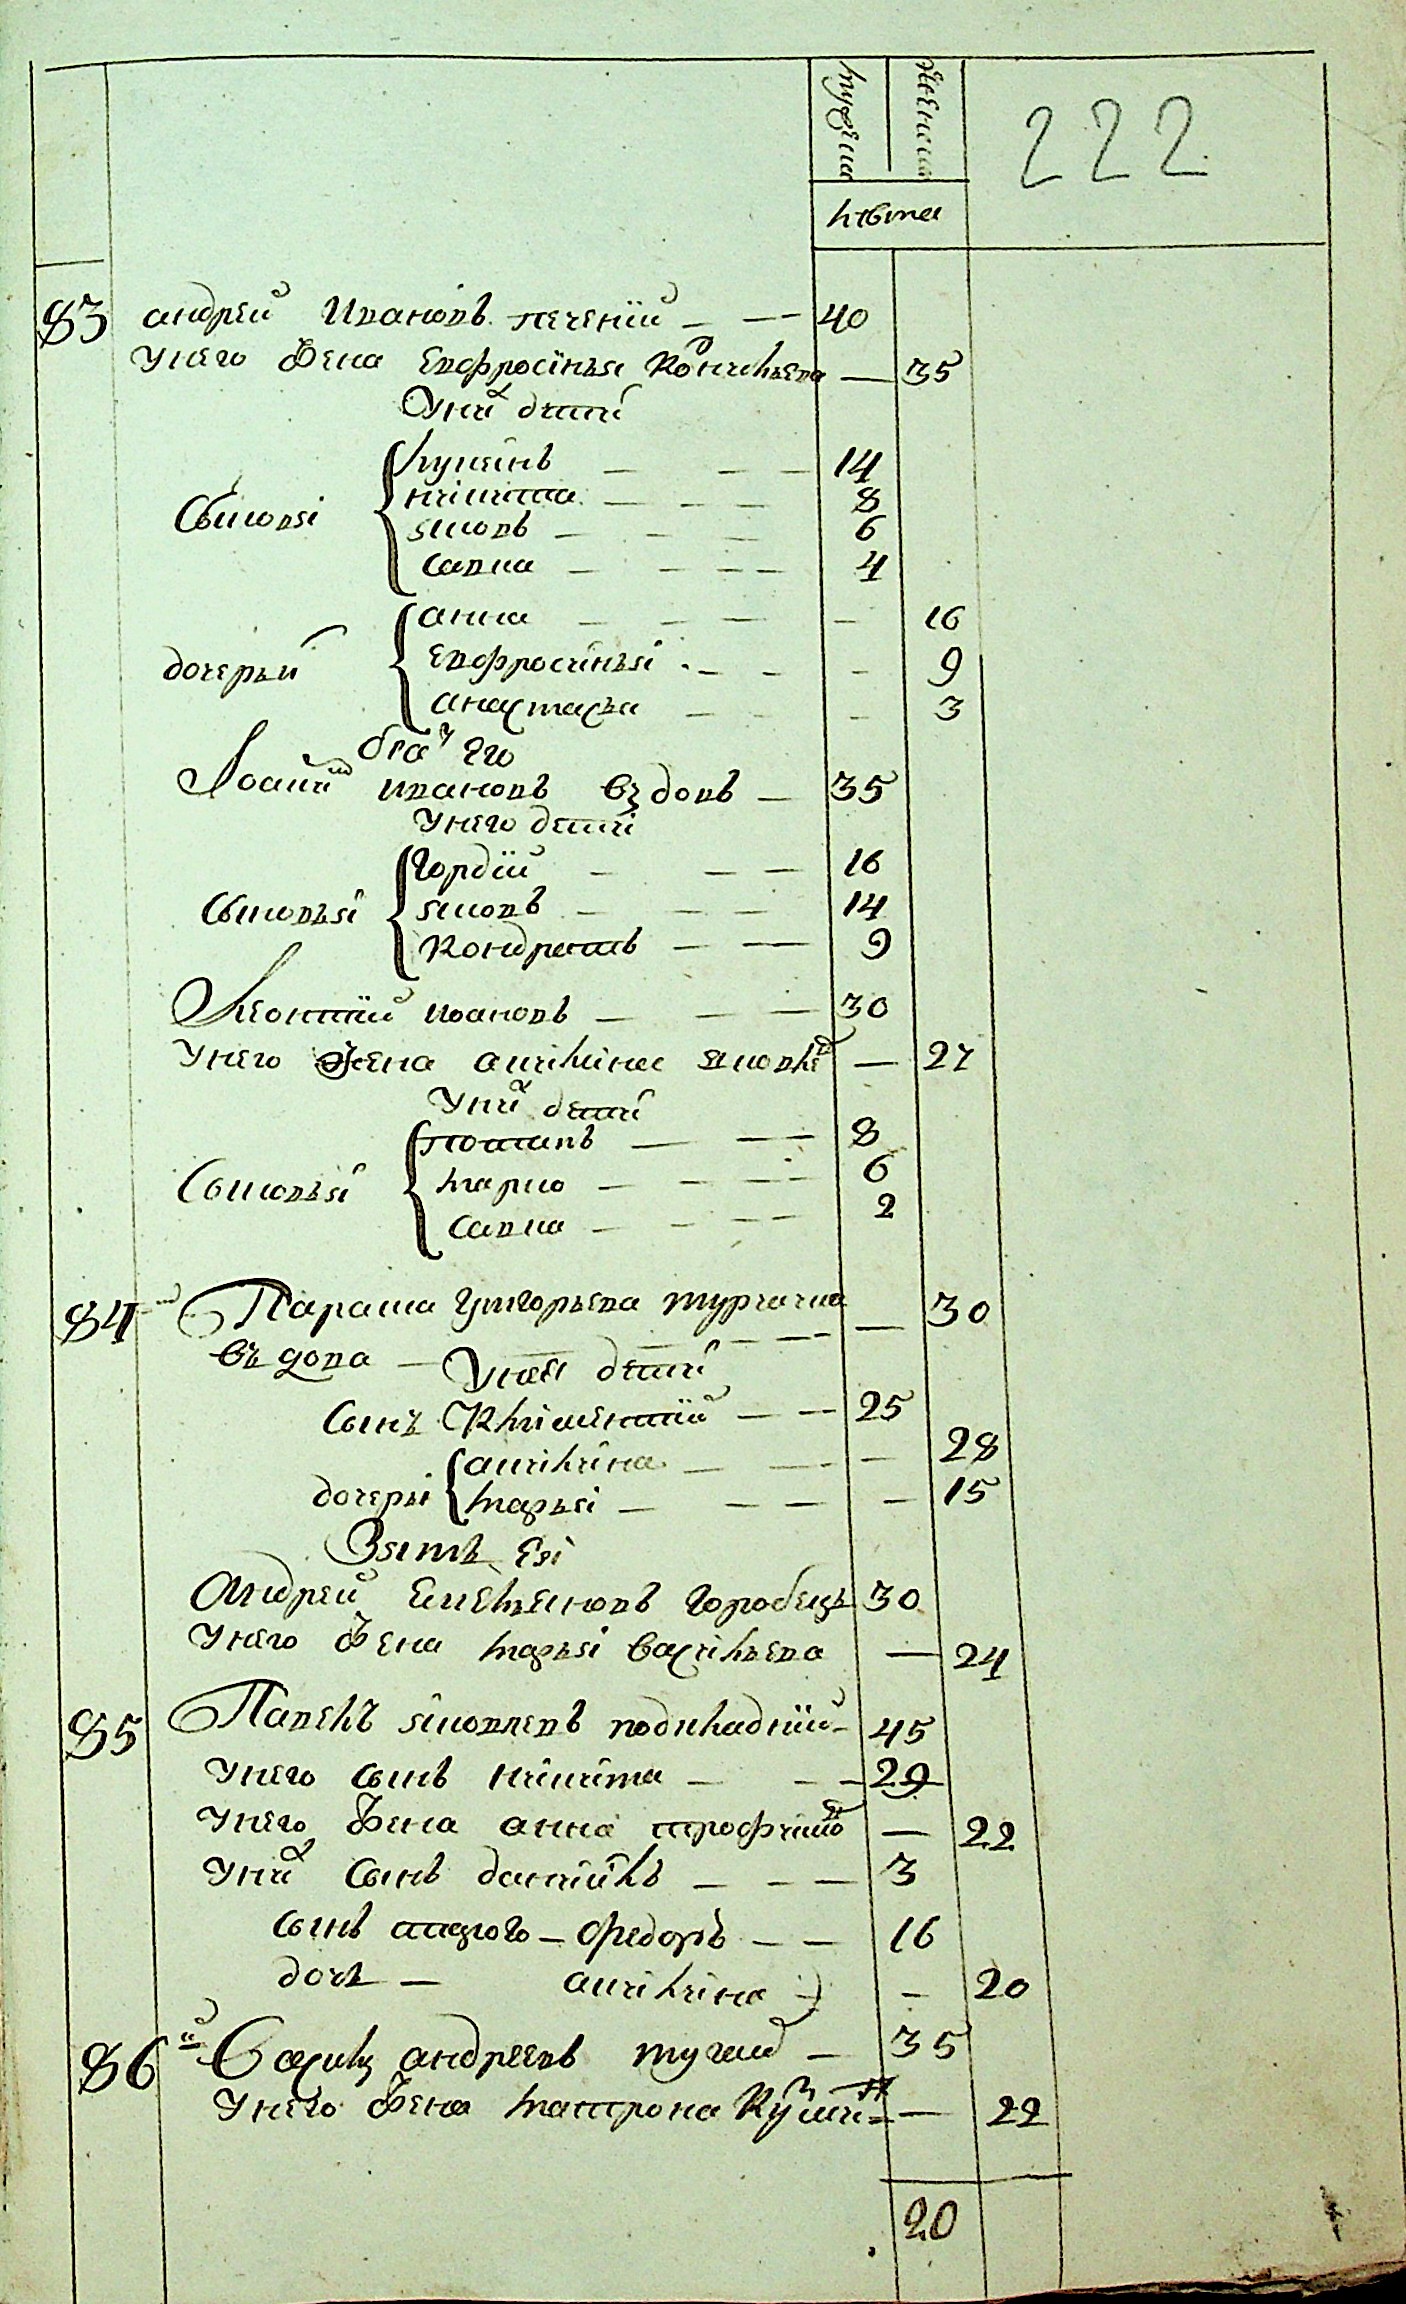 мужеска
женска
лѣта
222
83 андрей Ивановъ печений 40
Унего Жена Евфросинья Корнильева 35
Уних дети
Сыновя
Лукиянъ 14
никита 8
яковъ 6
савка 4
дочерьи
анна 16
Евфросинья 9
анастасья 3
братъ Его
Иоаний ивановъ въдовъ 35
Унего дети
Сыновья
гордий 16
яковъ 14
Кондратъ 9
Леонтий ивановъ 30
Унего Жена акилина яковле 27
Уних дети
Сыновья
потапъ 8
марко 6
савка 2
84 Параска григорьева 30
въдова Унея дети
Сынъ Климентий 25
дочеры
акилина 28
марья 15
Зять Ея
Андрей Емельяновъ горобець 30
Унего Жена марья васильева 24
85 Павелъ яковлевъ 45
Унего сынъ никита 29
Унего Жена анна трофимо 22
Уних Сынъ даниилъ 3
сынъ Федоръ 16
дочь акилина 20
86 андреевъ 35
Унего Жена матрона 22
20